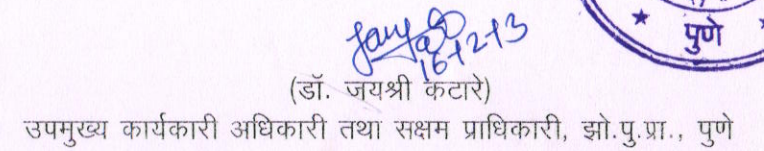 16/12/13
पुणे
(डॉ. जयश्री कटारे)
उपमुख्य कार्यकारी अधिकारी तथा सक्षम प्राधिकारी, झो.पु.प्रा., पुणे